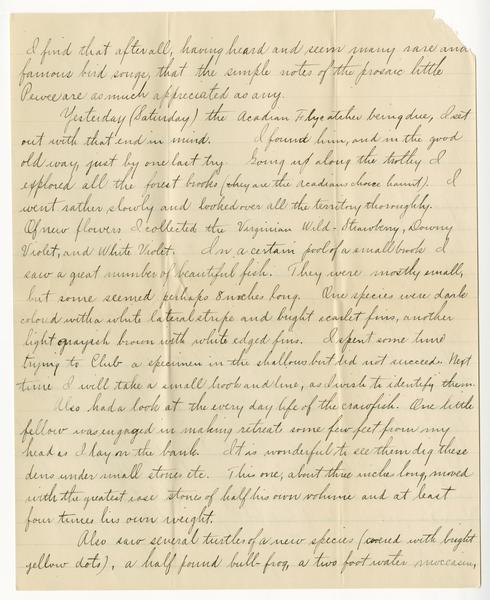 I find that after all, having heard and seem many rare and
famous bird songs, that the simple notes of the prosaic little
Pewee are as much appreciated as any.
Yesterday (Saturday) the Acadian Flycatcher being due, I set
out with that end in mind. I found him, and in the good
old way, just by one last try. Going up along the trolley I
explored all the forest brooks (they are the acadians choice haunt). I
went rather slowly and looked over all the territory thoroughly.
Of new flowers I collected the Virginian Wild-Strawberry, Downy
Violet, and White Violet. In a certain pool of a small brook I
saw a great number of beautiful fish. They were mostly small,
but some seemed perhaps 8 inches long. One species were dark
colored with a white lateral stripe and bright scarlet fins, another
light grayish brown with white edged fins. I spent some time
trying to Club a specimen in the shallows but did not succeed. Next
time I will take a small hook and line, as I wish to identify them.
Also had a look at the every day life of the crawfish. One little
fellow was engaged in making retreats some few feet from my
head as I lay on the bank. It is wonderful to see them dig these
dens under small stones etc. This one, about three inches long, moved
with the greatest ease stones of half his own volume and at least
four times his own weight.
Also saw several turtles of a new species (covered with bright
yellow dots), a half pound bull-frog, a two foot water moccasin,